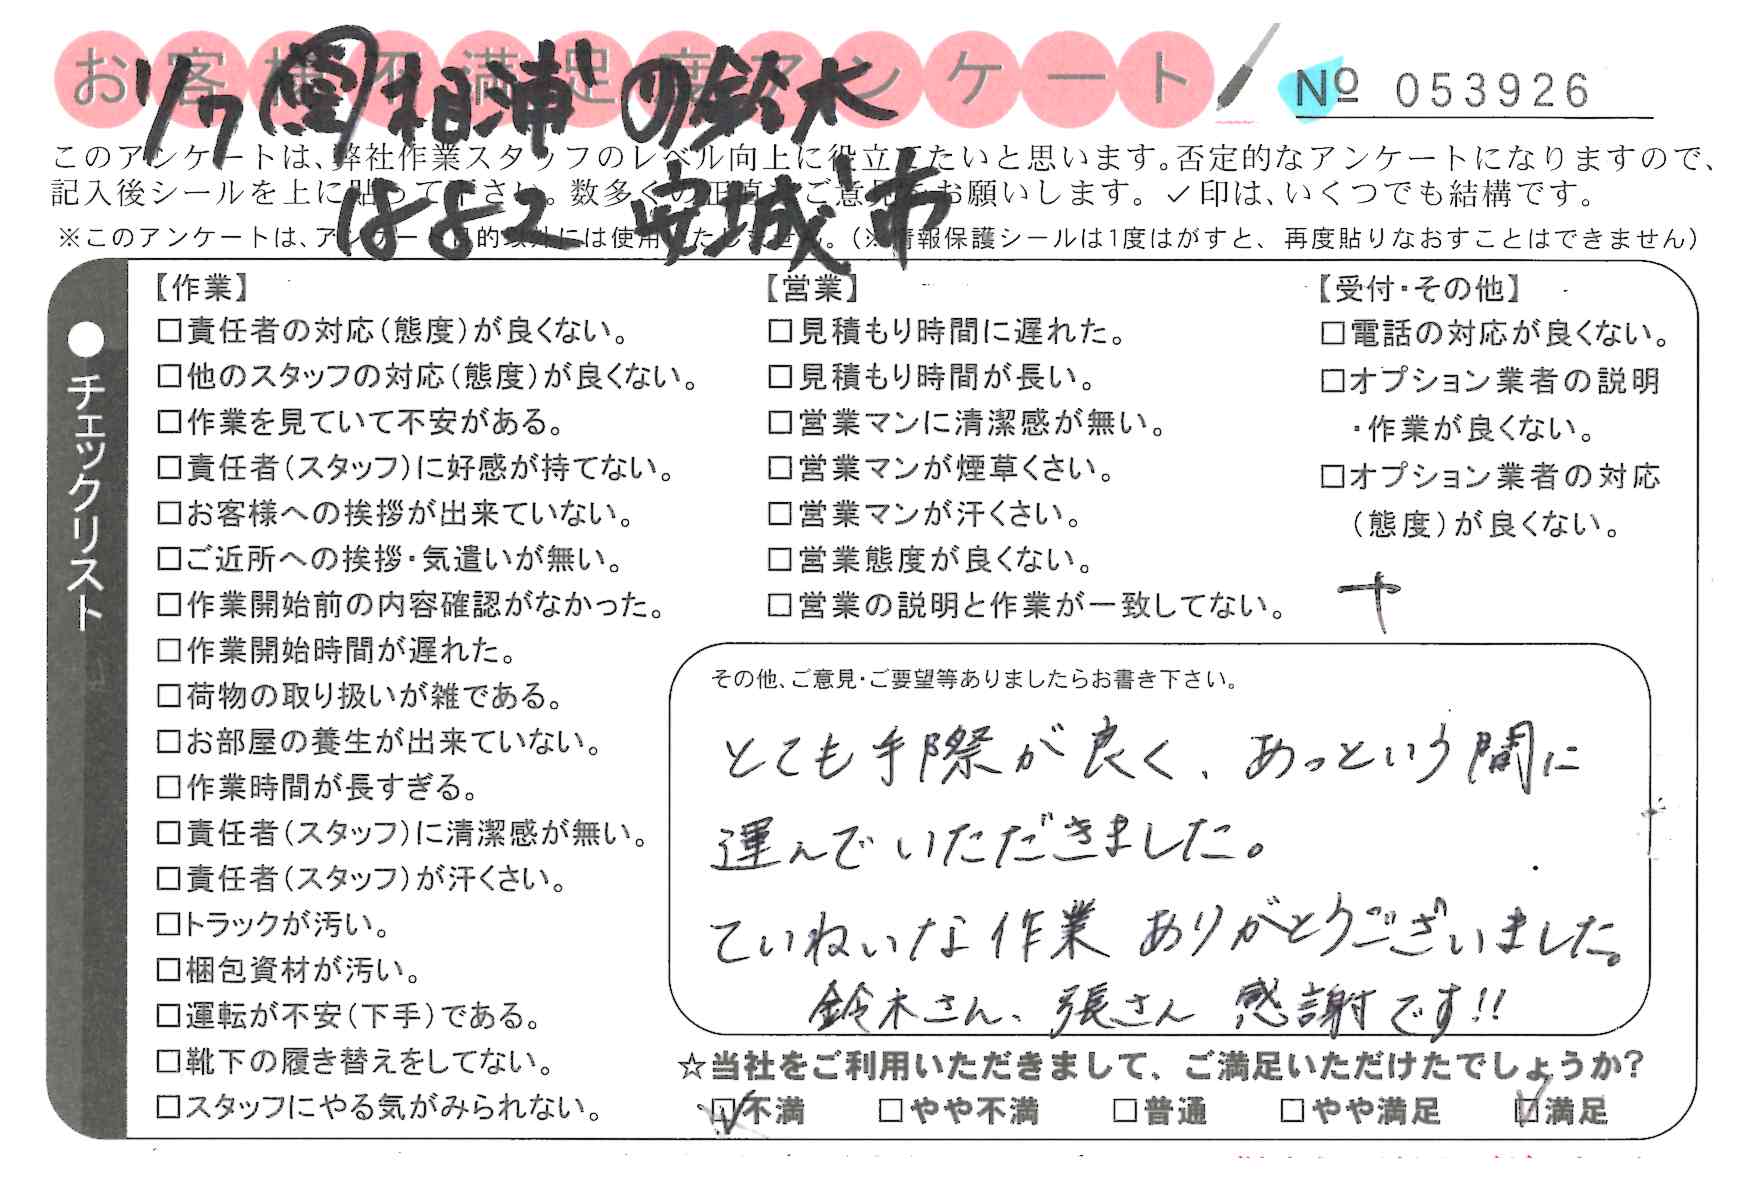 お客様不満足度アンケート
№ 053926
1/7 相浦の鈴木
1882 安城市
このアンケートは、弊社作業スタッフのレベル向上に役立てたいと思います。否定的なアンケートになりますので、
記入後シールを上に貼って下さい。数多くの正直なご意見をお願いします。✓印は、いくつでも結構です。
※このアンケートは、アンケート目的以外には使用いたしません。（※情報保護シールは1度はがすと、再度貼りなおすことはできません）
●チェックリスト
【作業】
□責任者の対応（態度）が良くない。
□他のスタッフの対応（態度）が良くない。
□作業を見ていて不安がある。
□責任者（スタッフ）に好感が持てない。
□お客様への挨拶が出来ていない。
□ご近所への挨拶・気遣いが無い。
□作業開始前の内容確認がなかった。
□作業開始時間が遅れた。
□荷物の取り扱いが雑である。
□お部屋の養生が出来ていない。
□作業時間が長すぎる。
□責任者（スタッフ）に清潔感が無い。
□責任者（スタッフ）が汗くさい。
□トラックが汚い。
□梱包資材が汚い。
□運転が不安（下手）である。
□靴下の履き替えをしてない。
□スタッフにやる気がみられない。
【営業】
□見積もり時間に遅れた。
□見積もり時間が長い。
□営業マンに清潔感が無い。
□営業マンが煙草くさい。
□営業マンが汗くさい。
□営業態度が良くない。
□営業の説明と作業が一致してない。
【受付・その他】
□電話の対応が良くない。
□オプション業者の説明
・作業が良くない。
□オプション業者の対応
（態度）が良くない。
その他、ご意見・ご要望等ありましたらお書き下さい。
とても手際が良く、あっという間に
運んでいただきました。
ていねいな作業 ありがとうございました。
鈴木さん、張さん 感謝です!!
☆当社をご利用いただきまして、ご満足いただけたでしょうか?
□不満 □やや不満 □普通 □やや満足 □満足